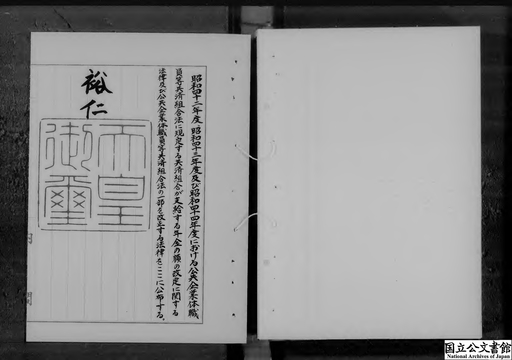 昭和四十二年度、昭和四十三年度及び昭和四十四年度における公共企業体職
員等共済組合法に規定する共済組合が支給する年金の額の改定に関する
法律及び公共企業体職員等共済組合法の一部を改正する法律をここに公布する。
裕仁
天皇
御璽
国立公文書館
National Archives of Japan